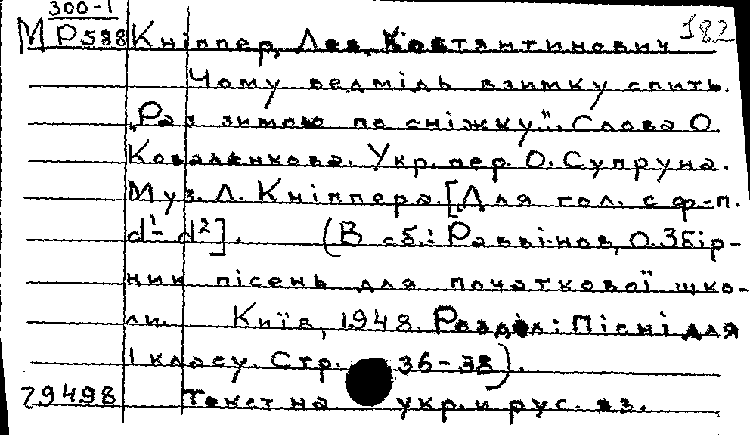 300-1
М Р588 Кніппер, Лев Костянтинович 182
Чому ведмідь взимку спить.
„Раз зимою по сніжку". Слова О.
Коваленкова. Укр. пер. О. Супруна.
Муз. Л. Кніппера. [Для гол. с ф-п.
d¹- d²]. (В сб.: Раввінов, О. Збір-
ник пісень для початкової шко-
ли. Київ, 1948. Розділ: Пісні для
1 класу. Стр. 36-38).
79498 Текст на укр. и рус. яз.